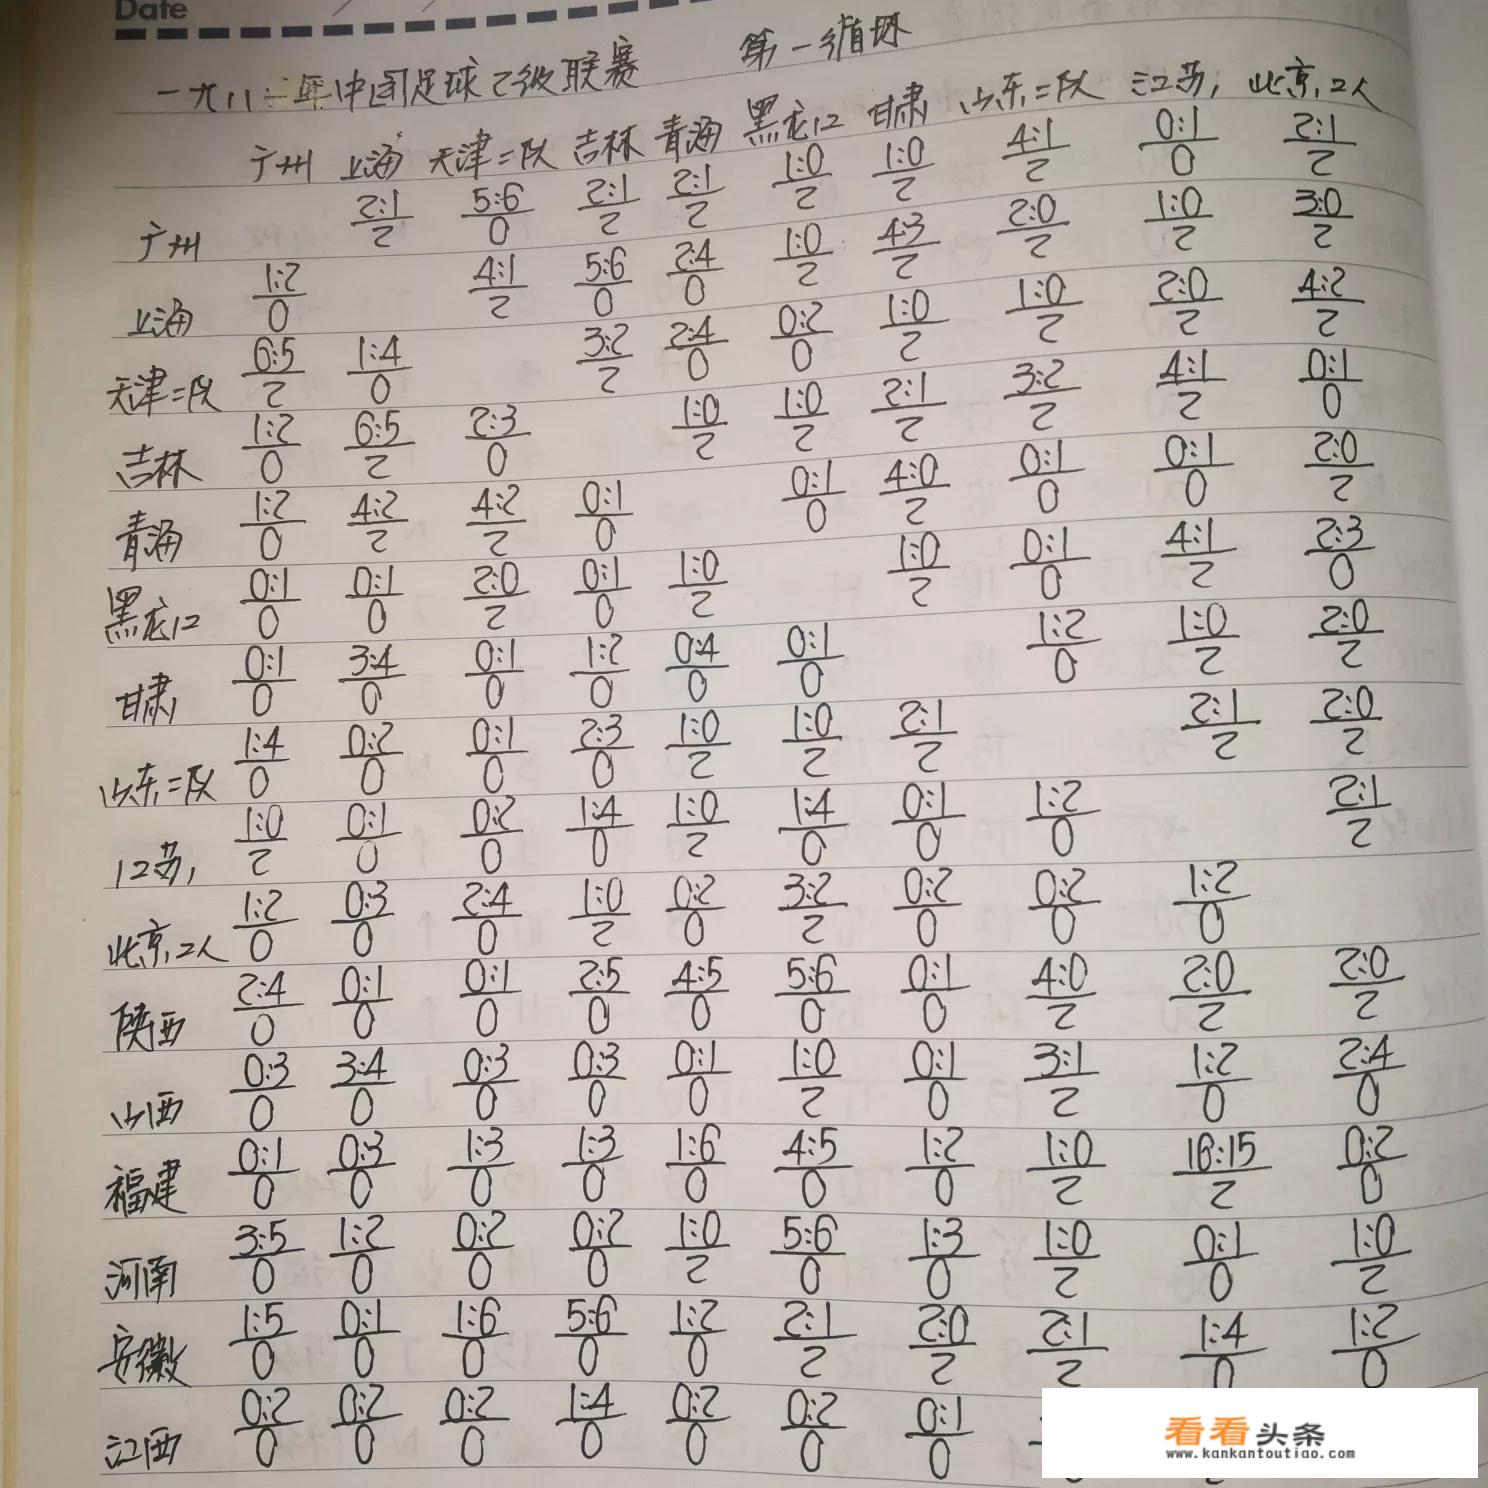 Date
一九八 年中国足球乙级联赛 第一循环
广州 上海 天津二队 吉林 青海 黑龙江 甘肃 山东二队 江苏 北京工人
广州 2:1/2 5:6/0 2:1/2 2:1/2 1:0/2 1:0/2 4:1/2 0:1/0 2:1/2
上海 1:2/0 4:1/2 5:6/0 2:4/0 1:0/2 4:3/2 2:0/2 1:0/2 3:0/2
天津二队 6:5/2 1:4/0 3:2/2 2:4/0 0:2/0 1:0/2 1:0/2 2:0/2 4:2/2
吉林 1:2/0 6:5/2 2:3/0 1:0/2 1:0/2 2:1/2 3:2/2 4:1/2 0:1/0
青海 1:2/0 4:2/2 4:2/2 0:1/0 0:1/0 4:0/2 0:1/0 0:1/0 2:0/2
黑龙江 0:1/0 0:1/0 2:0/2 0:1/0 1:0/2 1:0/2 0:1/0 4:1/2 2:3/0
甘肃 0:1/0 3:4/0 0:1/0 1:2/0 0:4/0 0:1/0 1:2/0 1:0/2 2:0/2
山东二队 1:4/0 0:2/0 0:1/0 2:3/0 1:0/2 1:0/2 2:1/2 2:1/2 2:0/2
江苏 1:0/2 0:1/0 0:2/0 1:4/0 1:0/2 1:4/0 0:1/0 1:2/0 2:1/2
北京工人 1:2/0 0:3/0 2:4/0 1:0/2 0:2/0 3:2/2 0:2/0 0:2/0 1:2/0
陕西 2:4/0 0:1/0 0:1/0 2:5/0 4:5/0 5:6/0 0:1/0 4:0/2 2:0/2 2:0/2
山西 0:3/0 3:4/0 0:3/0 0:3/0 0:1/0 1:0/2 0:1/0 3:1/2 1:2/0 2:4/0
福建 0:1/0 0:3/0 1:3/0 1:3/0 1:6/0 4:5/0 1:2/0 1:0/2 16:15/2 0:2/0
河南 3:5/0 1:2/0 0:2/0 0:2/0 1:0/2 5:6/0 1:3/0 1:0/2 0:1/0 1:0/2
安徽 1:5/0 0:1/0 1:6/0 5:6/0 1:2/0 2:1/2 2:0/2 2:1/2 1:4/0 1:2/0
江西 0:2/0 0:2/0 0:2/0 1:4/0 0:2/0 0:2/0 0:1/0
看看头条
www.kankantoutiao.com